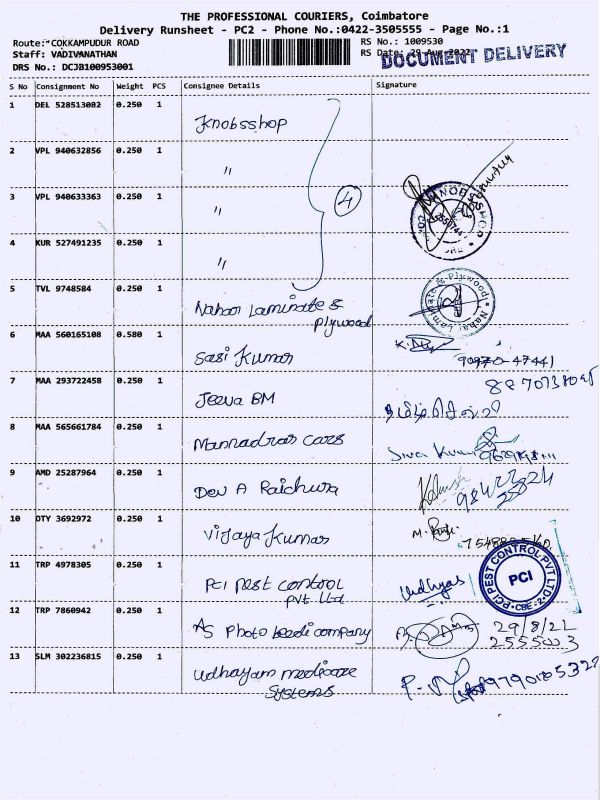 THE PROFESSIONAL COURIERS, Coimbatore
Delivery Runsheet - PC2 - Phone No.:0422-3505555 - Page No.:1
Route: COKKAMPUDUR ROAD
RS No.: 1009530
Staff: VADIVANATHAN
RS Date: 29-Aug-2022
DOCUMENT DELIVERY
DRS No.: DCJB100953001
S No Consignment No Weight PCS Consignee Details Signature
1 DEL 528513082 0.250 1 Knobsshop
2 VPL 940632856 0.250 1 "
3 VPL 940633363 0.250 1 "
4
KNOBSSHOP
4 KUR 527491235 0.250 1 "
5 TVL 9748584 0.250 1 Nahar Laminate &
Plywood
Nahar Laminate & Plywood
6 MAA 560165108 0.580 1 Sasi Kumar
90970-47441
7 MAA 293722458 0.250 1 Jeeva BM
8 MAA 565661784 0.250 1 Mannadras cars
Siva Kumar
9 AMD 25287964 0.250 1 Dev A Raichura
10 OTY 3692972 0.250 1 Vijaya Kumar
11 TRP 4978305 0.250 1 PCI Pest control
Pvt Ltd
PCI PEST CONTROL PVT LTD
PCI
CBE - 2
12 TRP 7860942 0.250 1 AS Photo beedi company
29/8/22
13 SLM 302236815 0.250 1 Udhayam medicare
Systems